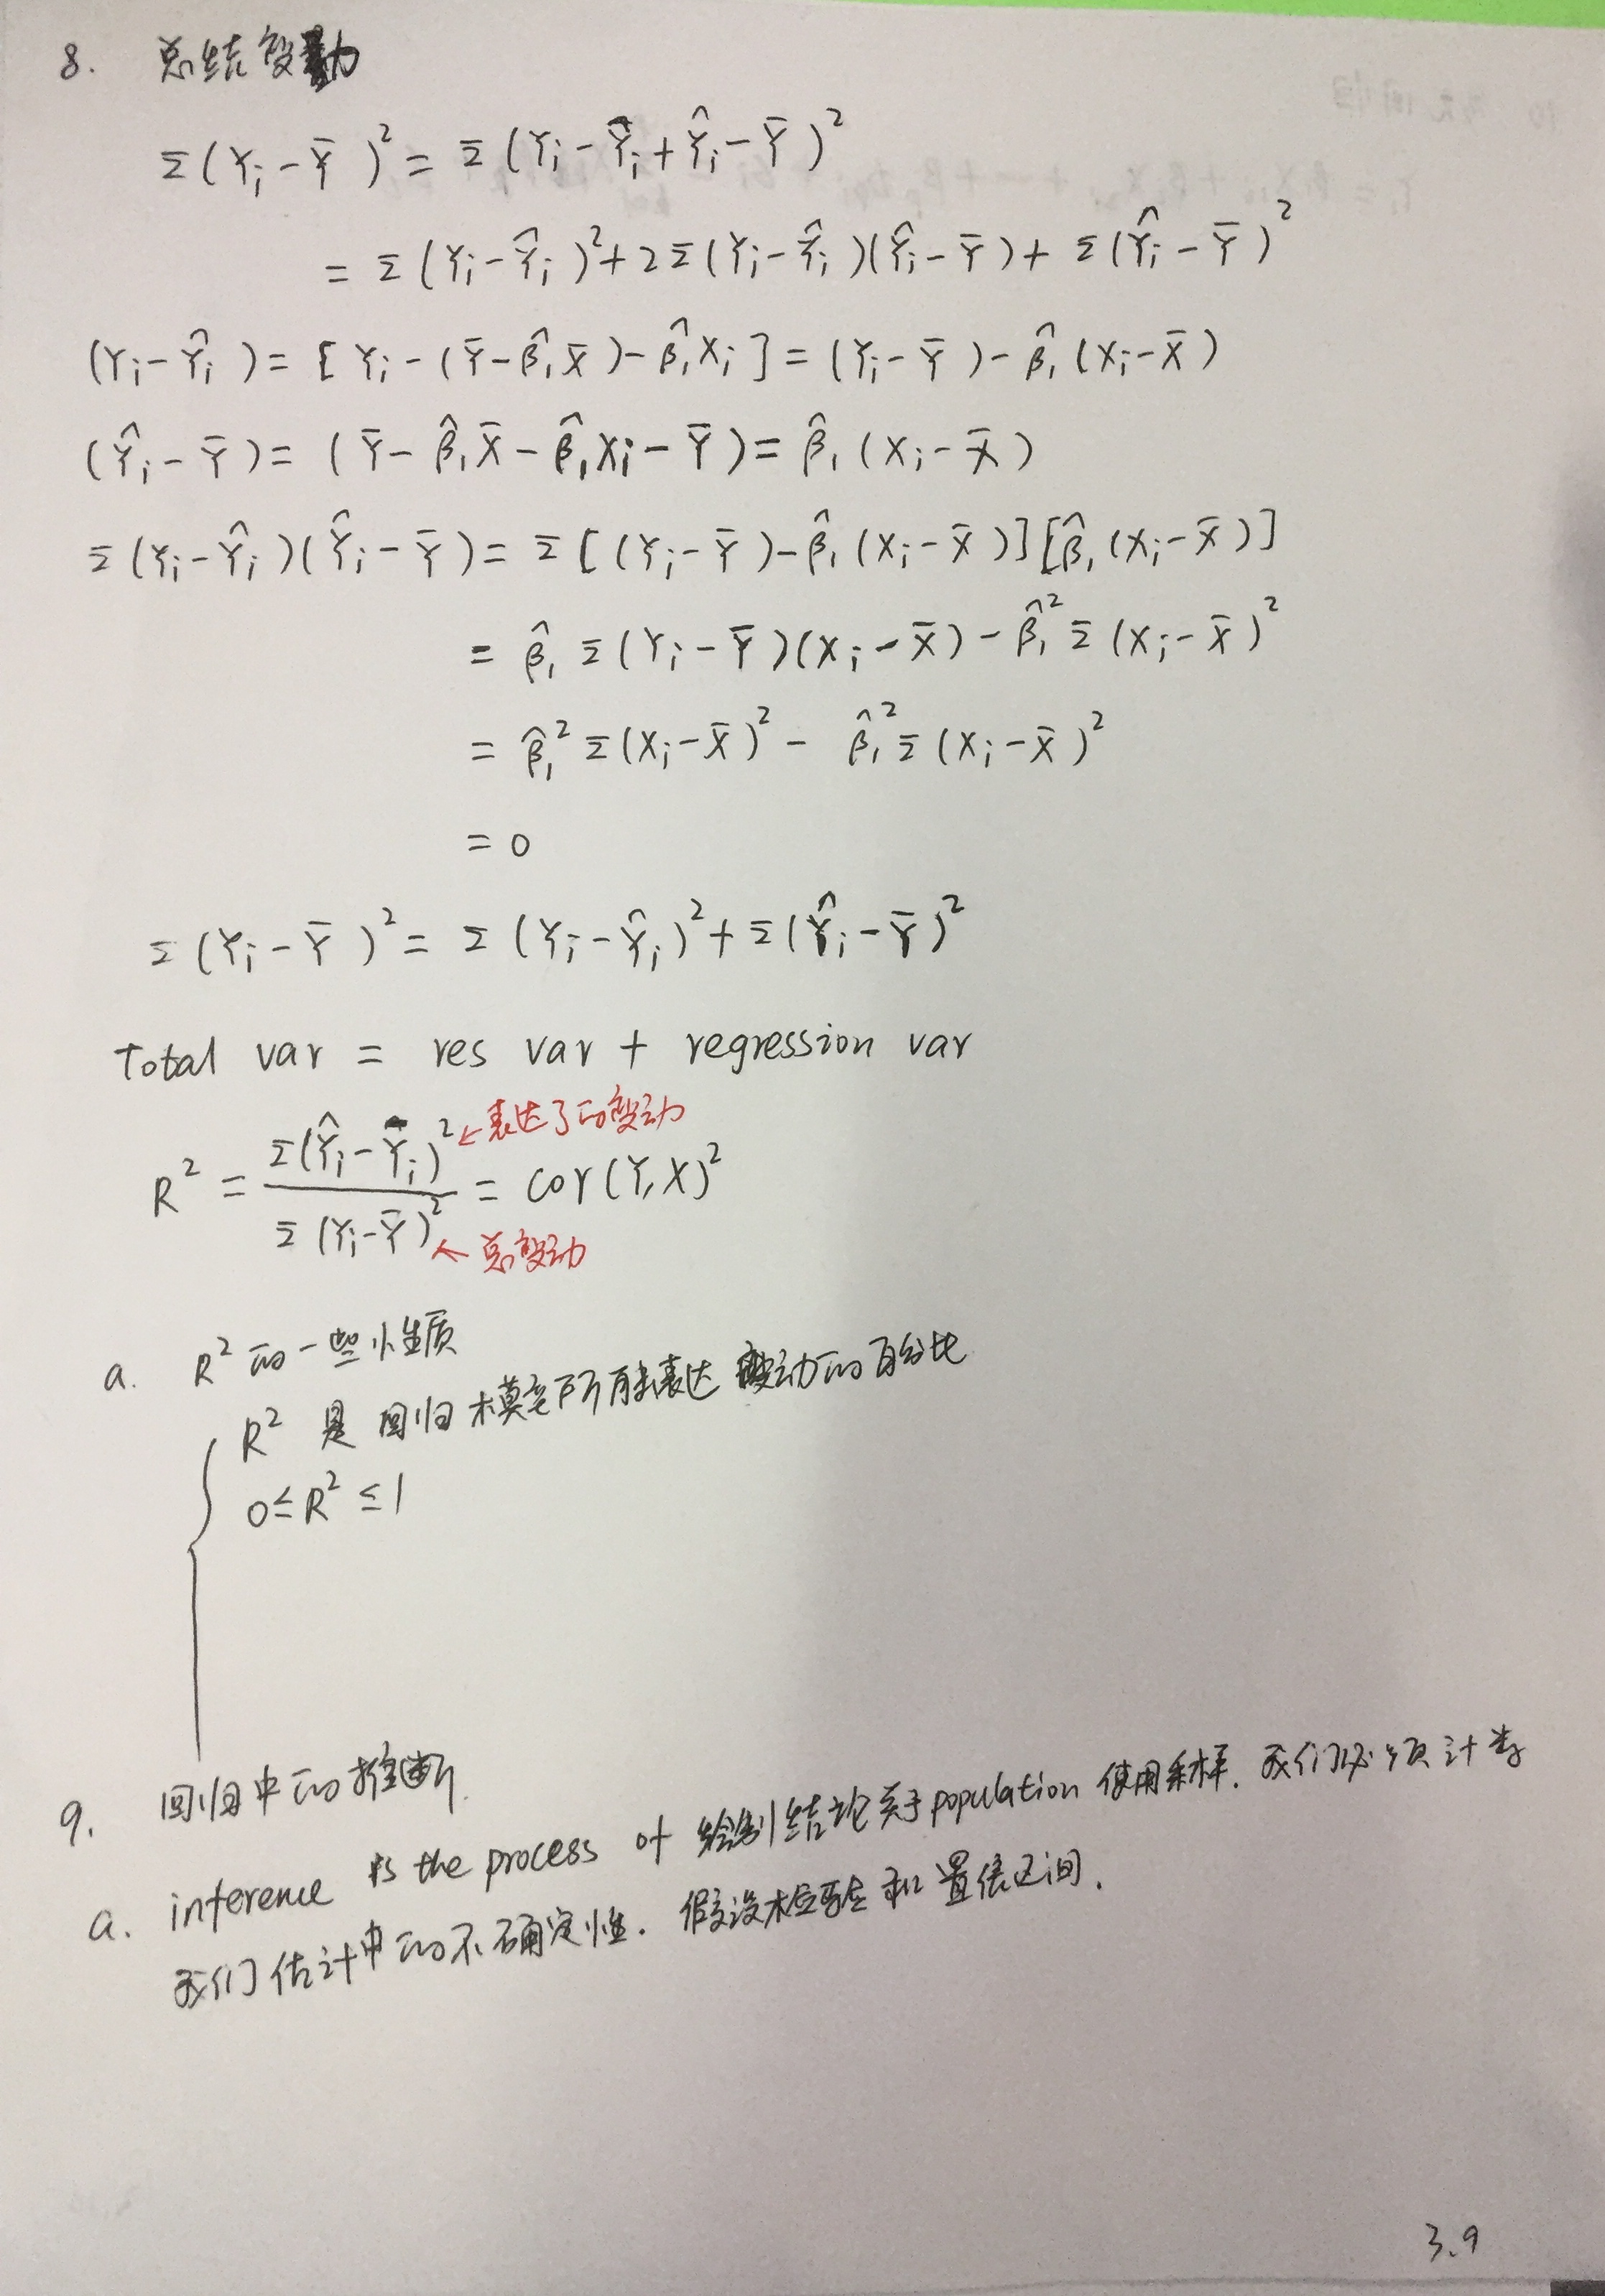 8. 总结变动
Σ(Yi-Ȳ)² = Σ(Yi-Ŷi+Ŷi-Ȳ)²
= Σ(Yi-Ŷi)²+2Σ(Yi-Ŷi)(Ŷi-Ȳ)+Σ(Ŷi-Ȳ)²
(Yi-Ŷi)=[Yi-(Ȳ-β̂₁X̄)-β̂₁Xi]=(Yi-Ȳ)-β̂₁(Xi-X̄)
(Ŷi-Ȳ)=(Ȳ-β̂₁X̄-β̂₁Xi-Ȳ)=β̂₁(Xi-X̄)
Σ(Yi-Ŷi)(Ŷi-Ȳ)=Σ[(Yi-Ȳ)-β̂₁(Xi-X̄)][β̂₁(Xi-X̄)]
= β̂₁Σ(Yi-Ȳ)(Xi-X̄)-β̂₁²Σ(Xi-X̄)²
= β̂₁²Σ(Xi-X̄)²-β̂₁²Σ(Xi-X̄)²
= 0
Σ(Yi-Ȳ)²=Σ(Yi-Ŷi)²+Σ(Ŷi-Ȳ)²
Total var = res var + regression var
R² = Σ(Ŷi-Ȳi)² / Σ(Yi-Ȳ)² = cor(Y,X)²
←表达了的变动
←总变动
a. R²的一些性质
R² 是回归模型所能表达变动的百分比
0≤R²≤1
9. 回归中的推断.
a. inference is the process of 绘制结论关于population 使用采样. 我们必须计考
我们估计中的不确定性. 假设检验和置信区间.
3.9